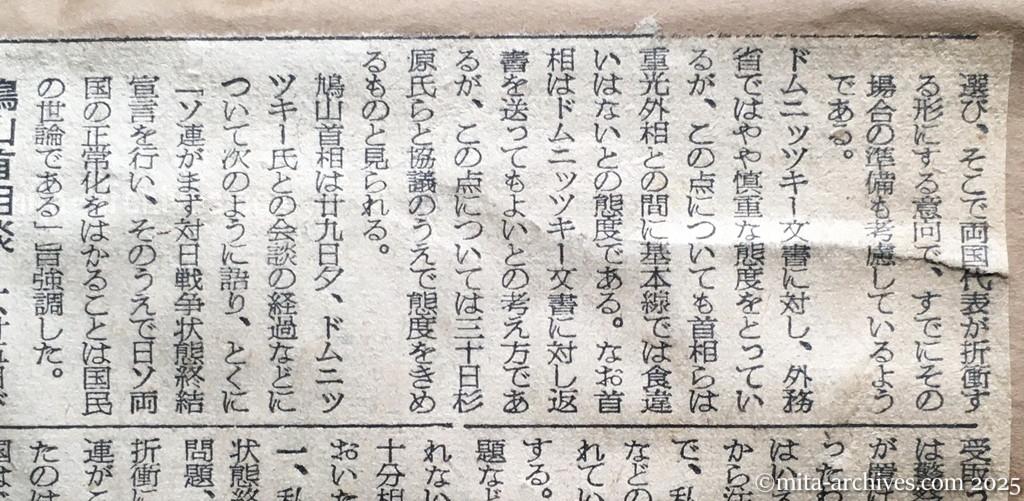 選び、そこで両国代表が折衝す
る形にする意向で、すでにその
場合の準備も考慮しているよう
である。
ドムニッツキー文書に対し、外務
省ではやや慎重な態度をとってい
るが、この点についても首相らは
重光外相との間に基本線では食違
いはないとの態度である。なお首
相はドムニッツキー文書に対し返
書を送ってもよいとの考え方であ
るが、この点については三十日杉
原氏らと協議のうえで態度をきめ
るものと見られる。
鳩山首相は廿九日夕、ドムニッ
ツキー氏との会談の経過などに
ついて次のように語り、とくに
「ソ連がまず対日戦争状態終結
宣言を行い、そのうえで日ソ両
国の正常化をはかることは国民
の世論である」旨強調した。
鳩山首相談
受取
は警
が置
ったわ
はいえ
から
で、私
などの
れてい
する。
題など
れない
十分相
おいた
一、私
状態終
問題、
折衝に
連がこ
たのは
国は
©mita-archives.com 2025